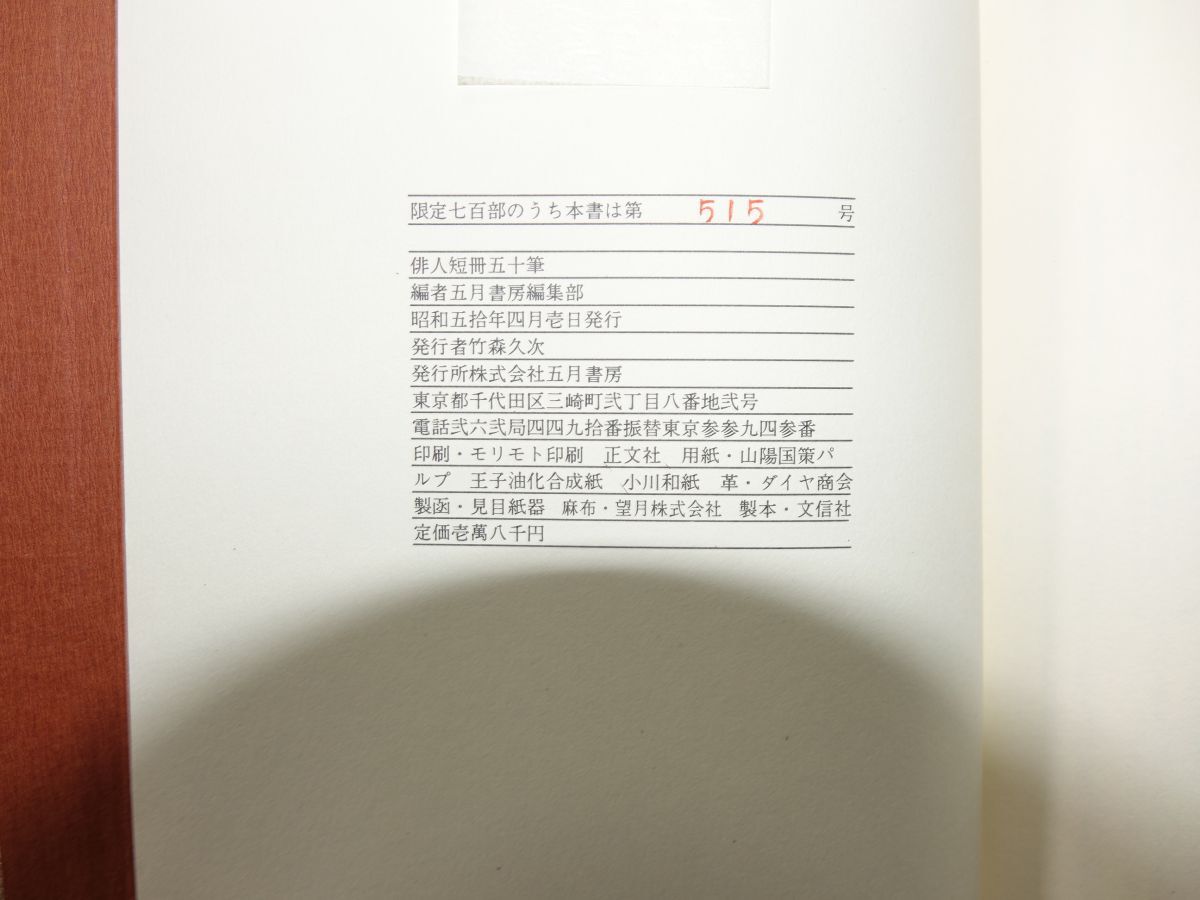 限定七百部のうち本書は第 515 号
俳人短冊五十筆
編者五月書房編集部
昭和五拾年四月壱日発行
発行者竹森久次
発行所株式会社五月書房
東京都千代田区三崎町弐丁目八番地弐号
電話弐六弐局四四九拾番振替東京参参九四参番
印刷・モリモト印刷 正文社 用紙・山陽国策パ
ルプ 王子油化合成紙 小川和紙 革・ダイヤ商会
製函・見目紙器 麻布・望月株式会社 製本・文信社
定価壱萬八千円